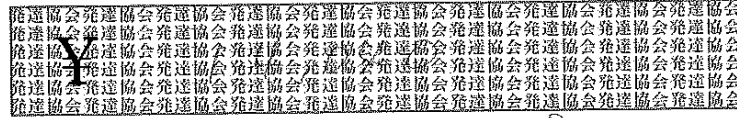 発達協会発達協会発達協会発達協会発達協会発達協会発達協会発達協会発達協会発達協会
発達協会発達協会発達協会発達協会発達協会発達協会発達協会発達協会発達協会発達協会
発達協会発達協会発達協会発達協会発達協会発達協会発達協会発達協会発達協会発達協会
¥
発達協会発達協会発達協会発達協会発達協会発達協会発達協会発達協会発達協会発達協会
発達協会発達協会発達協会発達協会発達協会発達協会発達協会発達協会発達協会発達協会
発達協会発達協会発達協会発達協会発達協会発達協会発達協会発達協会発達協会発達協会